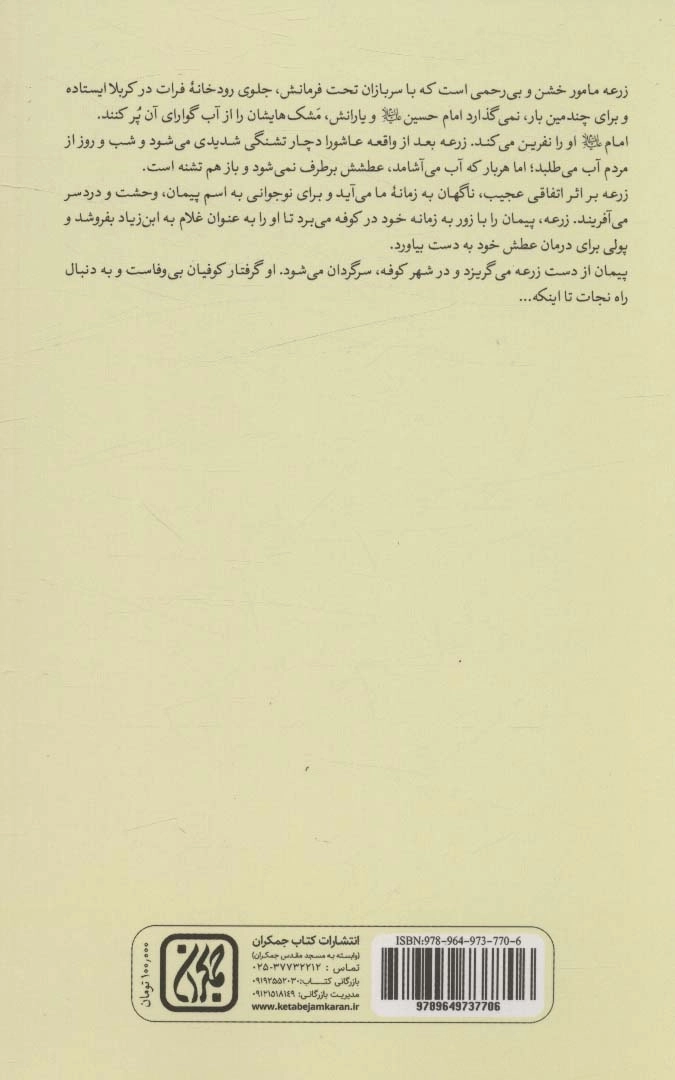 زرعه مامور خشن و بی‌رحمی است که با سربازان تحت فرمانش، جلوی رودخانۀ فرات در کربلا ایستاده
و برای چندمین بار، نمی‌گذارد امام حسین علیه‌السلام و یارانش، مَشک‌هایشان را از آب گوارای آن پُر کنند.
امام علیه‌السلام او را نفرین می‌کند. زرعه بعد از واقعه عاشورا دچار تشنگی شدیدی می‌شود و شب و روز از
مردم آب می‌طلبد؛ اما هربار که آب می‌آشامد، عطشش برطرف نمی‌شود و باز هم تشنه است.
زرعه بر اثر اتفاقی عجیب، ناگهان به زمانۀ ما می‌آید و برای نوجوانی به اسم پیمان، وحشت و دردسر
می‌آفریند. زرعه، پیمان را با زور به زمانه خود در کوفه می‌برد تا او را به عنوان غلام به ابن‌زیاد بفروشد و
پولی برای درمان عطش خود به دست بیاورد.
پیمان از دست زرعه می‌گریزد و در شهر کوفه، سرگردان می‌شود. او گرفتار کوفیان بی‌وفاست و به دنبال
راه نجات تا اینکه...
ISBN:978-964-973-770-6
9789649737706
انتشارات کتاب جمکران
(وابسته به مسجد مقدس جمکران)
تماس : ۰۲۵-۳۷۷۳۲۲۱۲
بازرگانی کتاب: ۰۹۱۹۲۵۵۲۰۳۰
مدیریت بازرگانی: ۰۹۱۲۱۵۱۸۱۴۹
www.ketabejamkaran.ir
جمکران
۱۰۰,۰۰۰ تومان